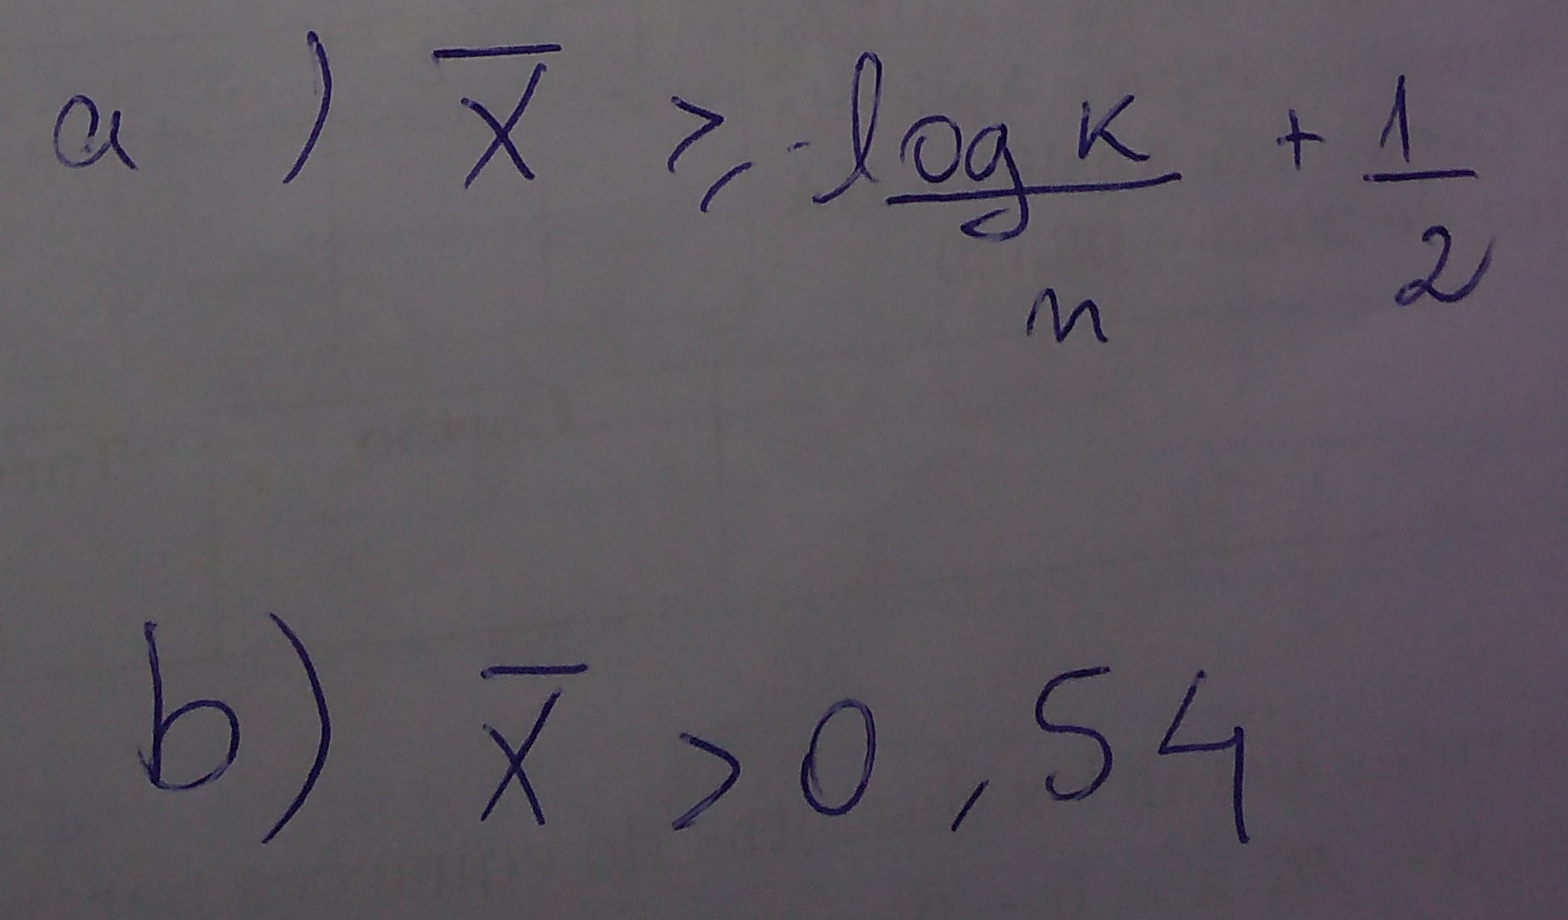 a) X̅ ≥ -log K / n + 1/2
b) X̅ > 0,54